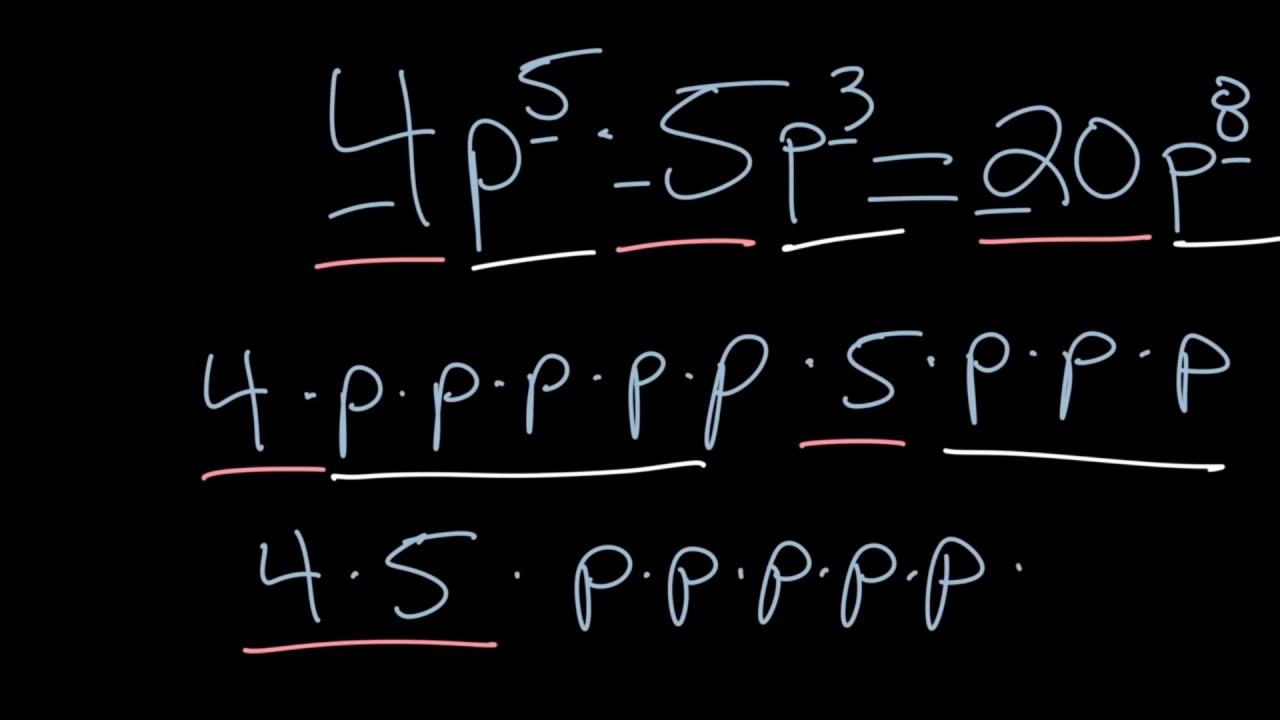 4p⁵ · 5p³ = 20p⁸
4 · p · p · p · p · p · 5 · p · p · p
4 · 5 · p · p · p · p · p ·